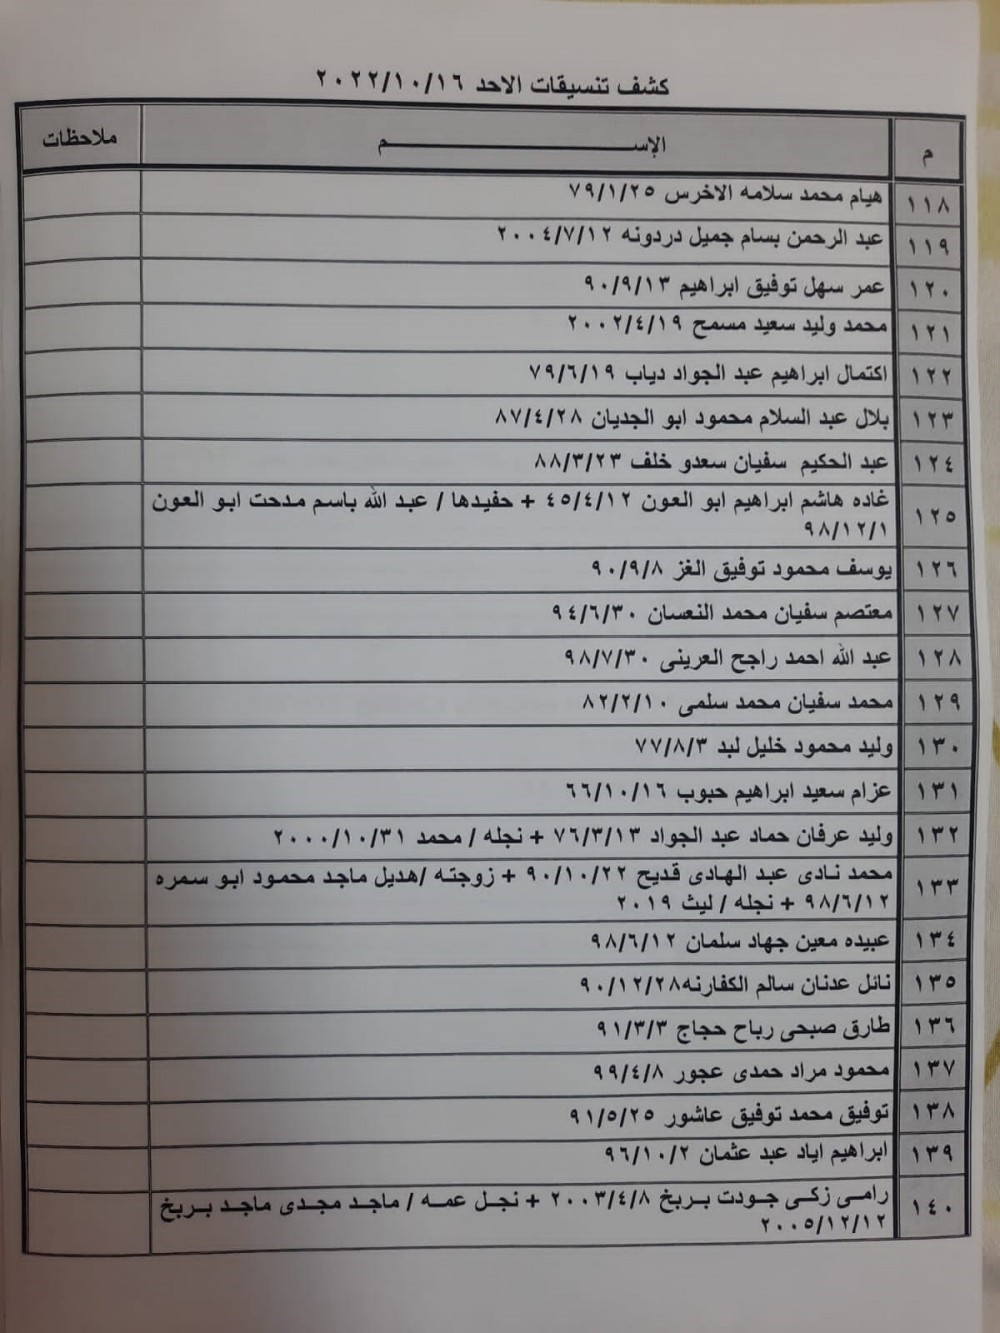 كشف تنسيقات الاحد ٢٠٢٢/١٠/١٦
م الإســـــــم ملاحظات
١١٨ هيام محمد سلامه الاخرس ٧٩/١/٢٥
١١٩ عبد الرحمن بسام جميل دردونه ٢٠٠٤/٧/١٢
١٢٠ عمر سهل توفيق ابراهيم ٩٠/٩/١٣
١٢١ محمد وليد سعيد مسمح ٢٠٠٢/٤/١٩
١٢٢ اكتمال ابراهيم عبد الجواد دياب ٧٩/٦/١٩
١٢٣ بلال عبد السلام محمود ابو الجديان ٨٧/٤/٢٨
١٢٤ عبد الحكيم سفيان سعدو خلف ٨٨/٣/٢٣
١٢٥ غاده هاشم ابراهيم ابو العون ٤٥/٤/١٢ + حفيدها / عبد الله باسم مدحت ابو العون
٩٨/١٢/١
١٢٦ يوسف محمود توفيق الغز ٩٠/٩/٨
١٢٧ معتصم سفيان محمد النعسان ٩٤/٦/٣٠
١٢٨ عبد الله احمد راجح العرينى ٩٨/٧/٣٠
١٢٩ محمد سفيان محمد سلمى ٨٢/٢/١٠
١٣٠ وليد محمود خليل لبد ٧٧/٨/٣
١٣١ عزام سعيد ابراهيم حبوب ٦٦/١٠/١٦
١٣٢ وليد عرفان حماد عبد الجواد ٧٦/٣/١٣ + نجله / محمد ٢٠٠٠/١٠/٣١
١٣٣ محمد نادى عبد الهادى قديح ٩٠/١٠/٢٢ + زوجته /هديل ماجد محمود ابو سمره
٩٨/٦/١٢ + نجله / ليث ٢٠١٩
١٣٤ عبيده معين جهاد سلمان ٩٨/٦/١٢
١٣٥ نائل عدنان سالم الكفارنه٩٠/١٢/٢٨
١٣٦ طارق صبحى رباح حجاج ٩١/٣/٣
١٣٧ محمود مراد حمدى عجور ٩٩/٤/٨
١٣٨ توفيق محمد توفيق عاشور ٩١/٥/٢٥
١٣٩ ابراهيم اياد عبد عثمان ٩٦/١٠/٢
١٤٠ رامى زكى جودت بربخ ٢٠٠٣/٤/٨ + نجل عمه / ماجد مجدى ماجد بربخ
٢٠٠٥/١٢/١٢